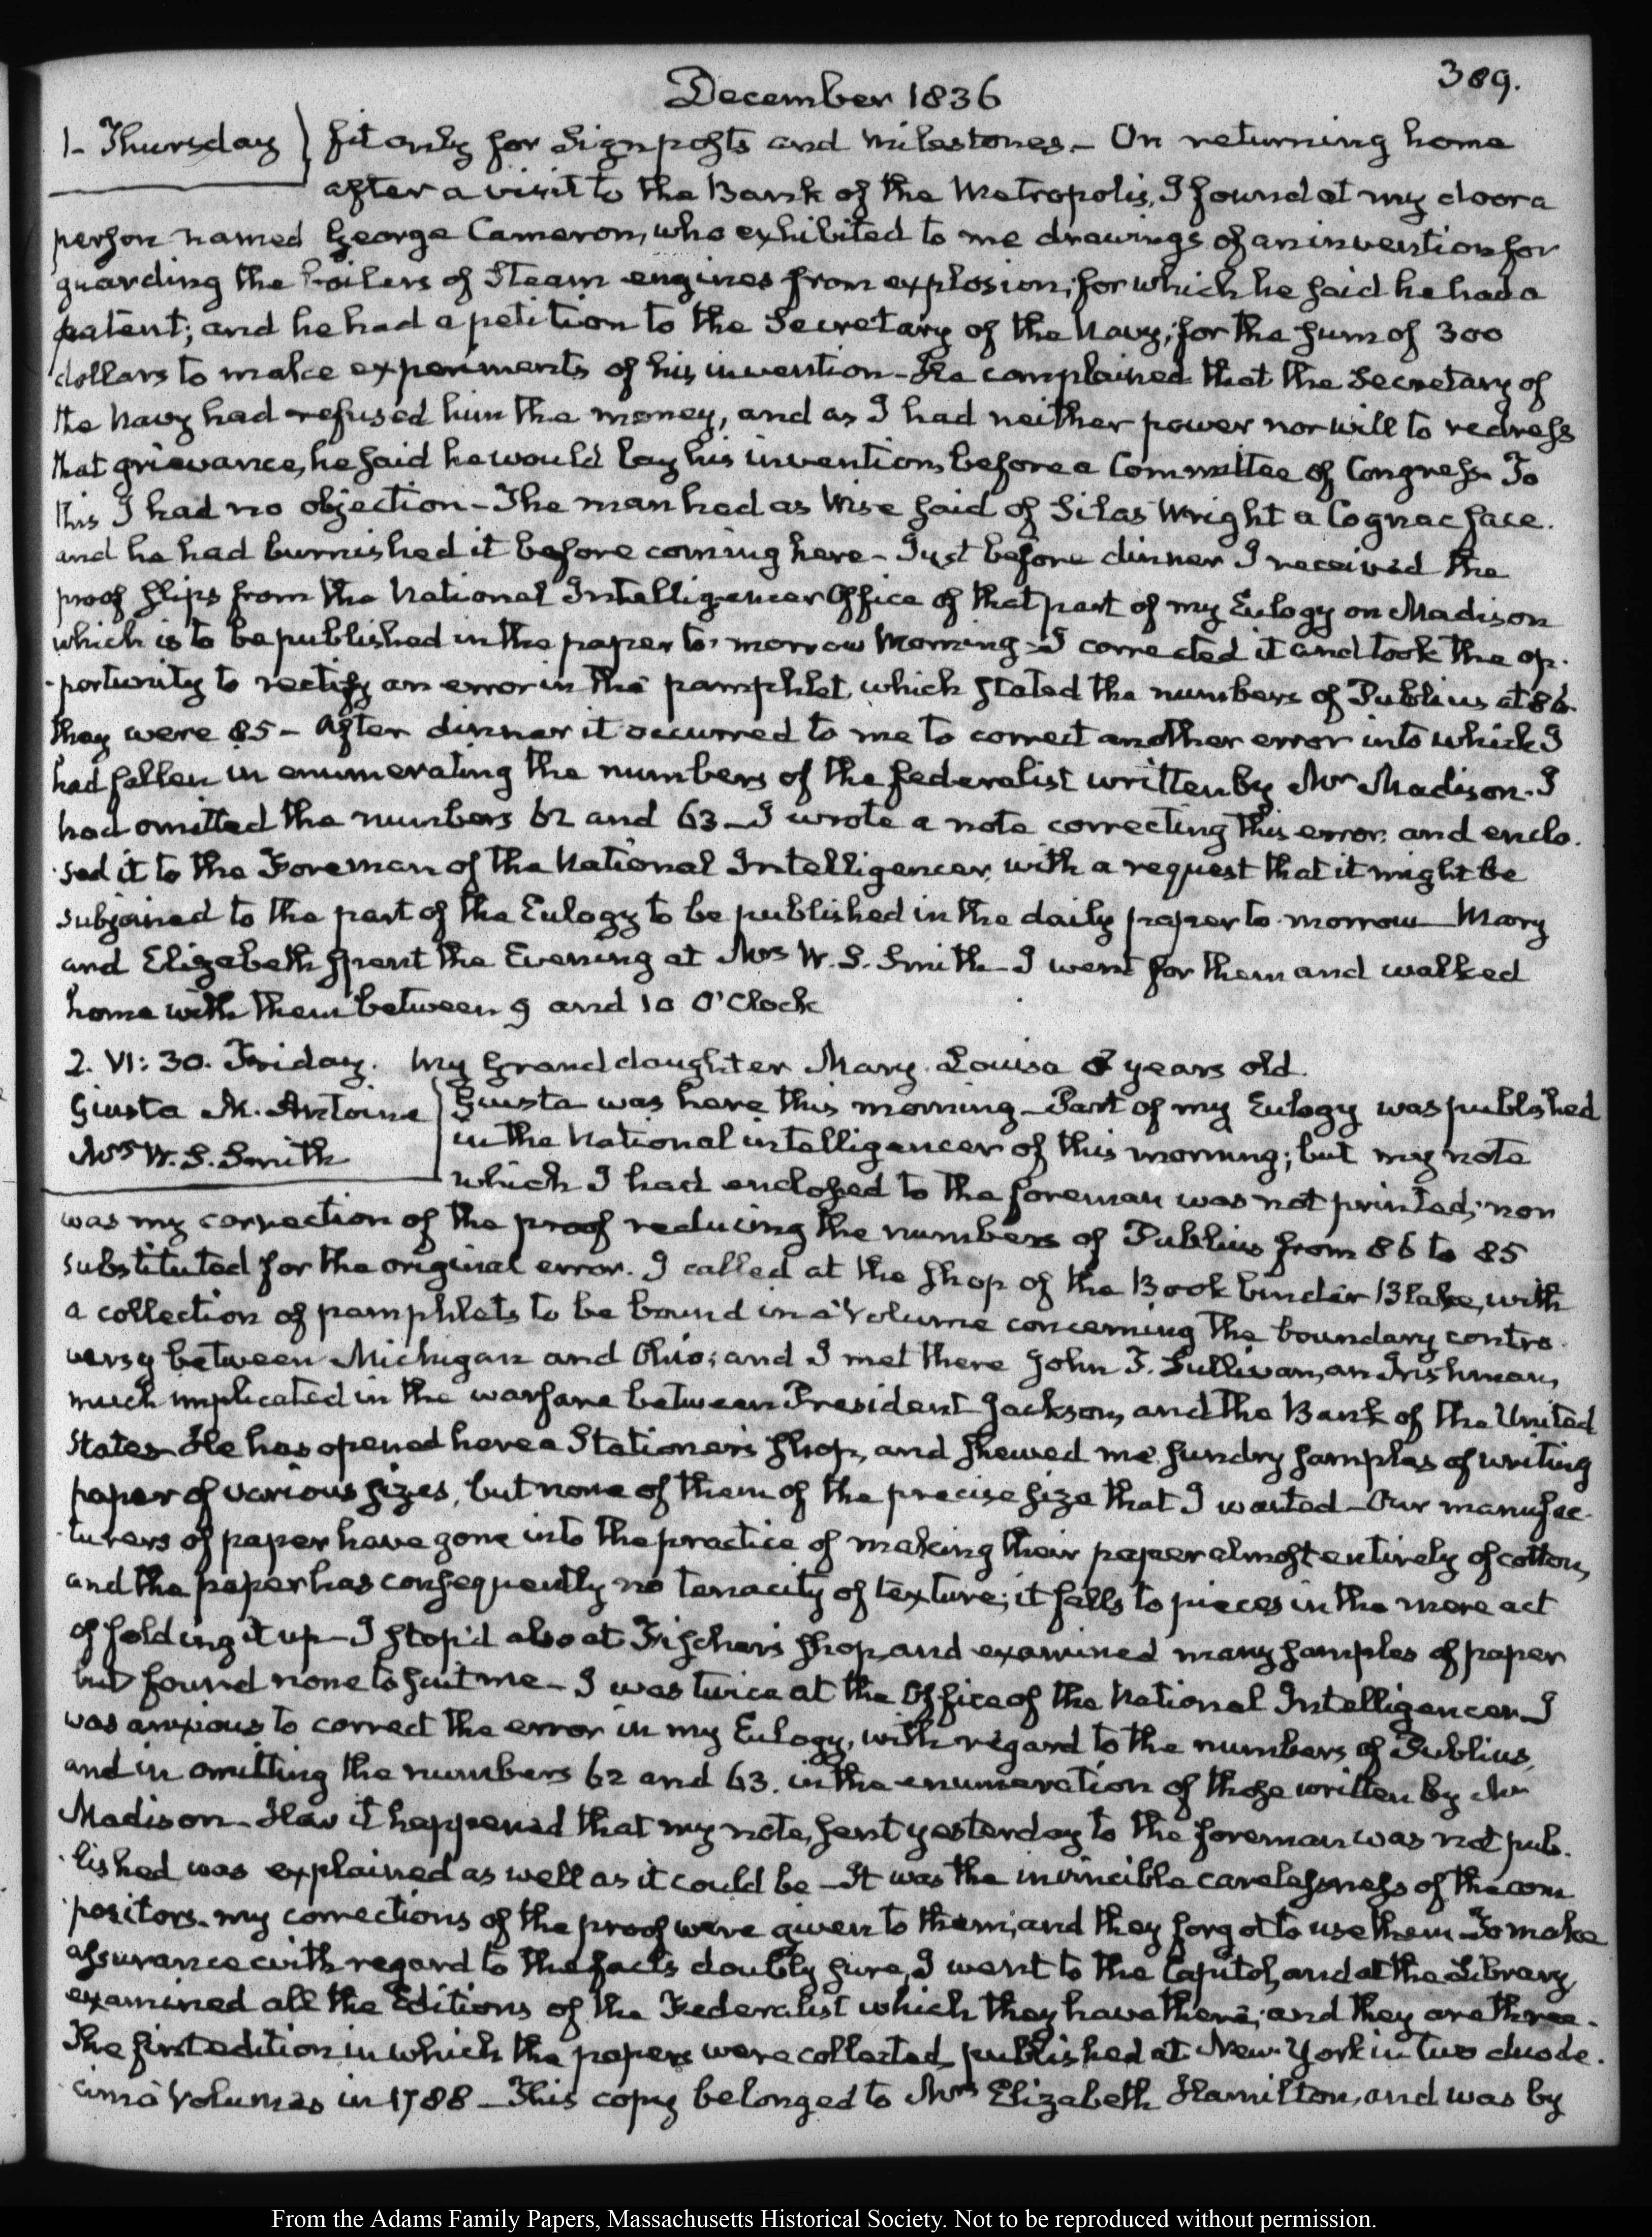 December 1836
389.
1. Thursday fit only for Signposts and milestones. — On returning home
after a visit to the Bank of the Metropolis, I found at my door a
person named George Cameron, who exhibited to me drawings of an invention for
guarding the boilers of Steam engines from explosion; for which he said he had a
patent; and he had a petition to the Secretary of the Navy; for the sum of 300
dollars to make experiments of his invention — He complained that the Secretary of
the Navy had refused him the money, and as I had neither power nor will to redress
that grievance, he said he would lay his invention before a Committee of Congress. To
this I had no objection — The man had as Wise said of Silas Wright a Cognac face.
and he had burnished it before coming here — Just before dinner I received the
proof slips from the National Intelligencer Office of that part of my Eulogy on Madison
which is to be published in the paper to-morrow Morning — I corrected it and took the op-
-portunity to rectify an error in the pamphlet, which stated the numbers of Publius at 86.
they were 85 — After dinner it occurred to me to correct another error into which I
had fallen in enumerating the numbers of the federalist written by Mr Madison. I
had omitted the numbers 62 and 63 — I wrote a note correcting this error. and enclo-
-sed it to the Foreman of the National Intelligencer, with a request that it might be
subjoined to the part of the Eulogy to be published in the daily paper to-morrow — Mary
and Elizabeth spent the Evening at Mrs W. S. Smith — I went for them and walked
home with them between 9 and 10 O'Clock
2. VI: 30. Friday. My Grand daughter Mary Louisa 8 years old.
Giusta M. Antoine
Mrs W. S. Smith
Giusta was here this morning — Part of my Eulogy was published
in the National intelligencer of this morning; but my note
which I had enclosed to the foreman was not printed; nor
was my correction of the proof reducing the numbers of Publius from 86 to 85
substituted for the original error. I called at the shop of the Book binder Blake, with
a collection of pamphlets to be bound in a Volume concerning the boundary contro-
versy between Michigan and Ohio; and I met there John T. Sullivan, an Irishman,
much implicated in the warfare between President Jackson, and the Bank of the United
States — He has opened here a Stationer's shop, and shewed me sundry samples of writing
paper of various sizes, but none of them of the precise size that I wanted — Our manufac-
-turers of paper have gone into the practice of making their paper almost entirely of cotton,
and the paper has consequently no tenacity of texture; it falls to pieces in the mere act
of folding it up — I stop'd also at Fischer's shop, and examined many samples of paper
but found none to suit me — I was twice at the Office of the National Intelligencer — I
was anxious to correct the error in my Eulogy, with regard to the numbers of Publius,
and in omitting the numbers 62 and 63. in the enumeration of those written by Mr
Madison — How it happened that my note, sent yesterday to the foreman was not pub-
-lished was explained as well as it could be — It was the invincible carelessness of the com
-positors. my corrections of the proof were given to them, and they forgot to use them — To make
assurance with regard to the facts doubly sure, I went to the Capitol, and at the Library,
examined all the Editions of the Federalist which they have there; and they are three.
The first edition in which the papers were collected, published at New-York in two duode-
-cimo Volumes in 1788 — This copy belonged to Mrs Elizabeth Hamilton, and was by
From the Adams Family Papers, Massachusetts Historical Society. Not to be reproduced without permission.